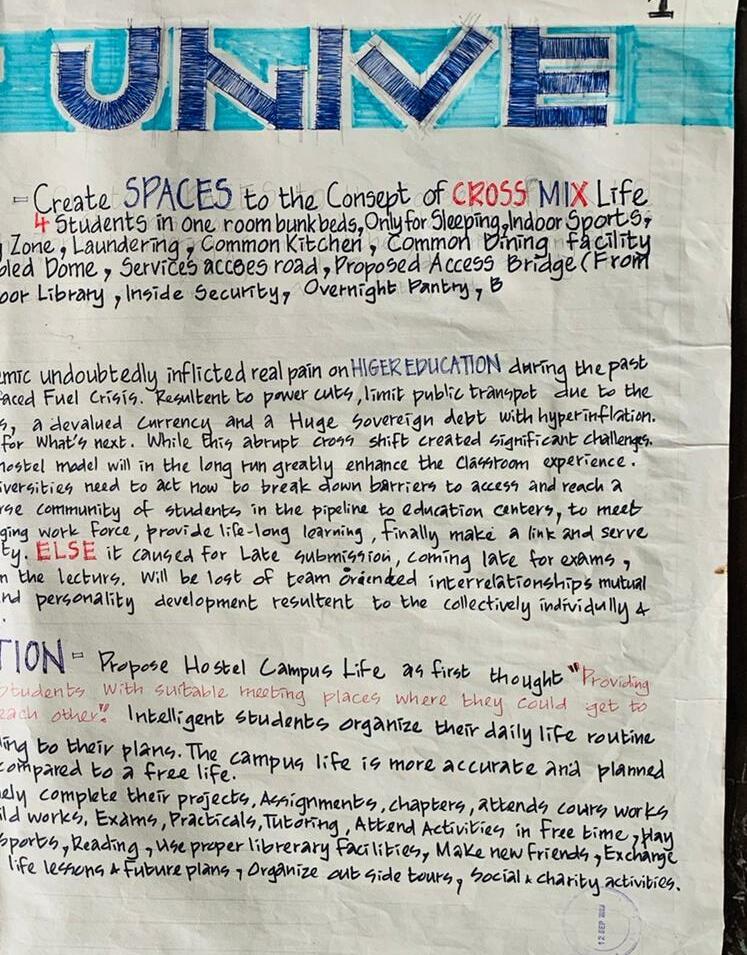 1
UNIVE
- Create SPACES to the Consept of CROSS MIX Life
4 Students in one room bunkbeds, Only for Sleeping, Indoor Sports,
Zone, Laundering, Common Kitchen, Common Dining facility
bled Dome, Services accoes road, Proposed Access Bridge (From
oor Library, Inside Security, Overnight Pantry, B
mic undoubtedly inflicted real pain on HIGER EDUCATION during the past
aced Fuel Crisis. Resultent to power cuts, limit public transpot due to the
s, a devalued currency and a Huge Sovereign debt with hyperinflation.
for What's next. While this abrupt cross shift created significant challenges.
hostel model will in the long run greatly enhance the Classroom experience.
iversities need to act now to break down barriers to access and reach a
rse community of students in the pipeline to education centers, to meet
ging work force, provide life-long learning, finally make a link and serve
ty. ELSE it caused for Late submission, coming late for exams,
n the lecturs. Will be lost of team oriended interrelationships mutual
nd personality development resultent to the collectively individully &
TION - Propose Hostel Campus Life as first thought "Providing
students with suitable meeting places where they could get to
each other." Intelligent students organize their daily life routine
ing to their plans. The campus life is more accurate and planned
compared to a free life.
ely complete their projects, Assignments, chapters, attends cours works
ild works, Exams, Practicals, Tutoring, Attend Activities in Free time, play
sports, Reading, use proper librerary facilities, Make new friends, Exchange
life lessons & Future plans, Organize out side tours, Social & charity activities.